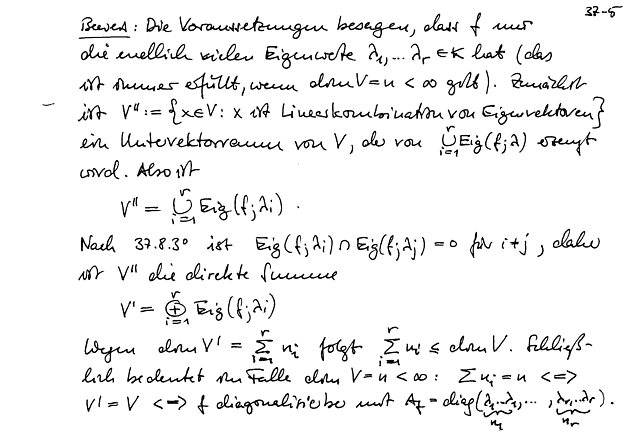 37-5
Beweis: Die Voraussetzungen besagen, dass f nur
die endlich vielen Eigenwerte λ₁,... λᵣ ∈ K hat (das
ist immer erfüllt, wenn dim V = n < ∞ gilt). Zunächst
ist V'' := {x∈V : x ist Linearkombination von Eigenvektoren}
ein Untervektorraum von V, der von ⋃ᵢ₌₁ʳ Eig(f;λ) erzeugt
wird. Also ist
V'' = ⋃ᵢ₌₁ʳ Eig(f;λᵢ) .
Nach 37.8.3° ist Eig(f;λᵢ) ∩ Eig(f;λⱼ) = 0 für i≠j, daher
ist V'' die direkte Summe
V' = ⊕ᵢ₌₁ʳ Eig(f;λᵢ)
Wegen dim V' = Σᵢ₌₁ʳ nᵢ folgt Σᵢ₌₁ʳ nᵢ ≤ dim V. Schließ-
lich bedeutet im Falle dim V = n < ∞ : Σ nᵢ = n <=>
V' = V <=> f diagonalisierbar mit A_f = diag(λ₁...λ₁,... , λᵣ...λᵣ).
n₁ nᵣ